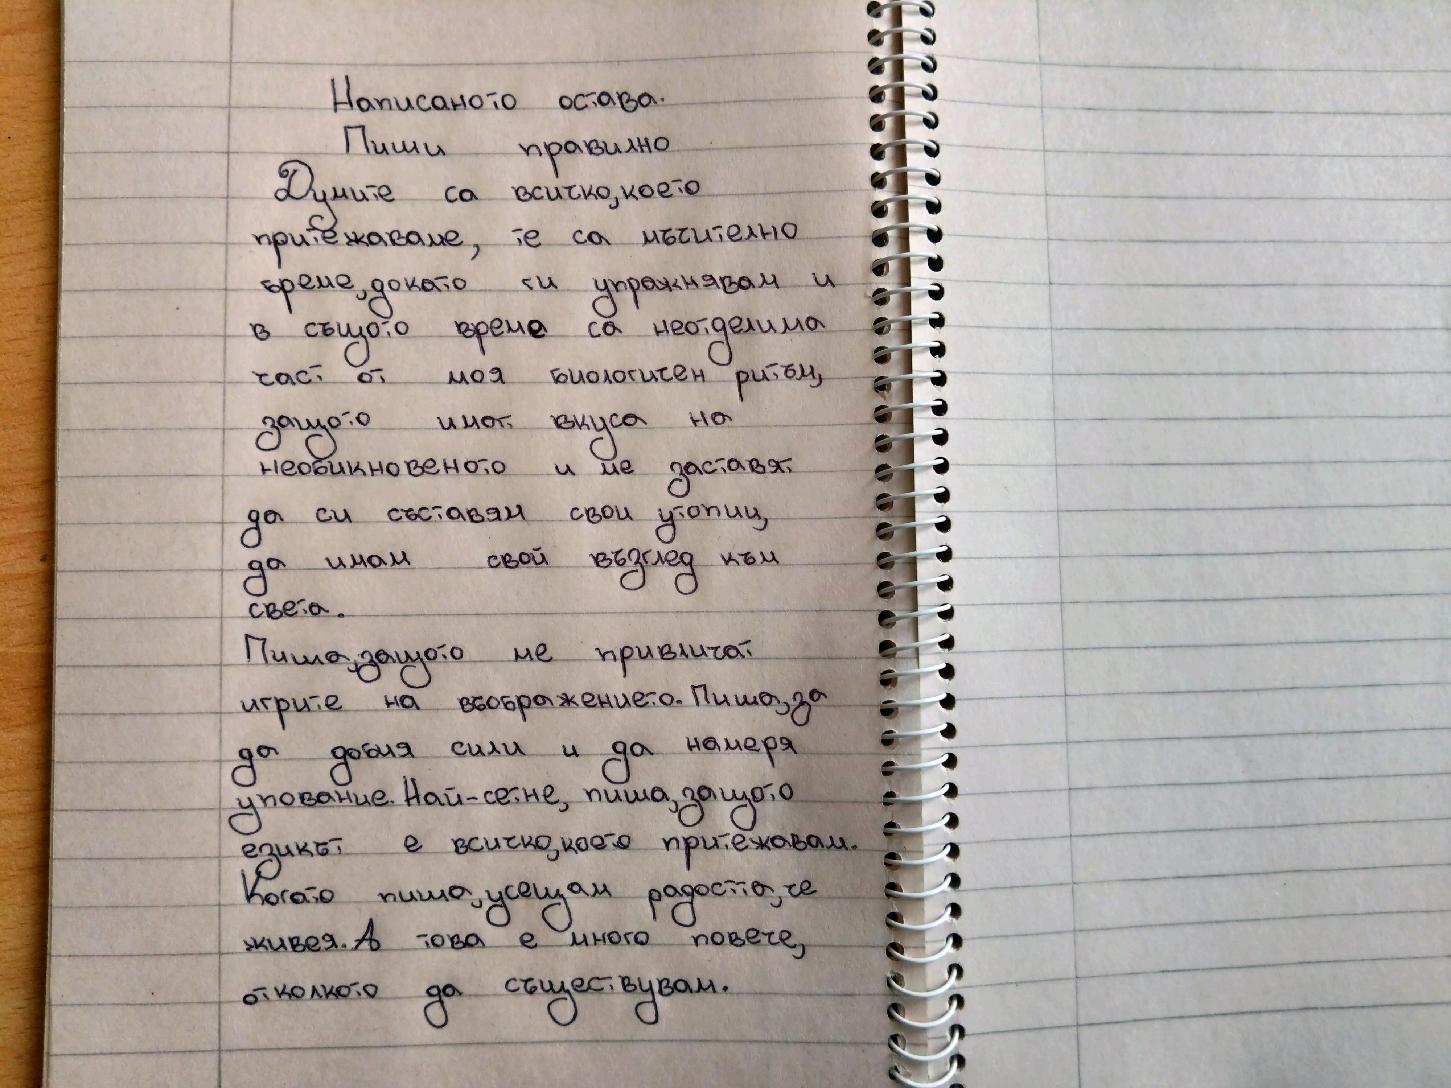 Написаното остава.
Пиши правилно
Думите са всичко,което
притежаваме, те са мъчително
бреме,докато ги упражнявам и
в същото време са неотделима
част от моя биологичен ритъм,
защото имат вкуса на
необикновеното и ме заставят
да си съставям свои утопии,
да имам свой възглед към
света.
Пиша,защото ме привличат
игрите на въображението. Пиша,за
да добия сили и да намеря
упование. Най-сетне, пиша,защото
езикът е всичко,което притежавам.
Когато пиша,усещам радостта,че
живея. А това е много повече,
отколкото да съществувам.